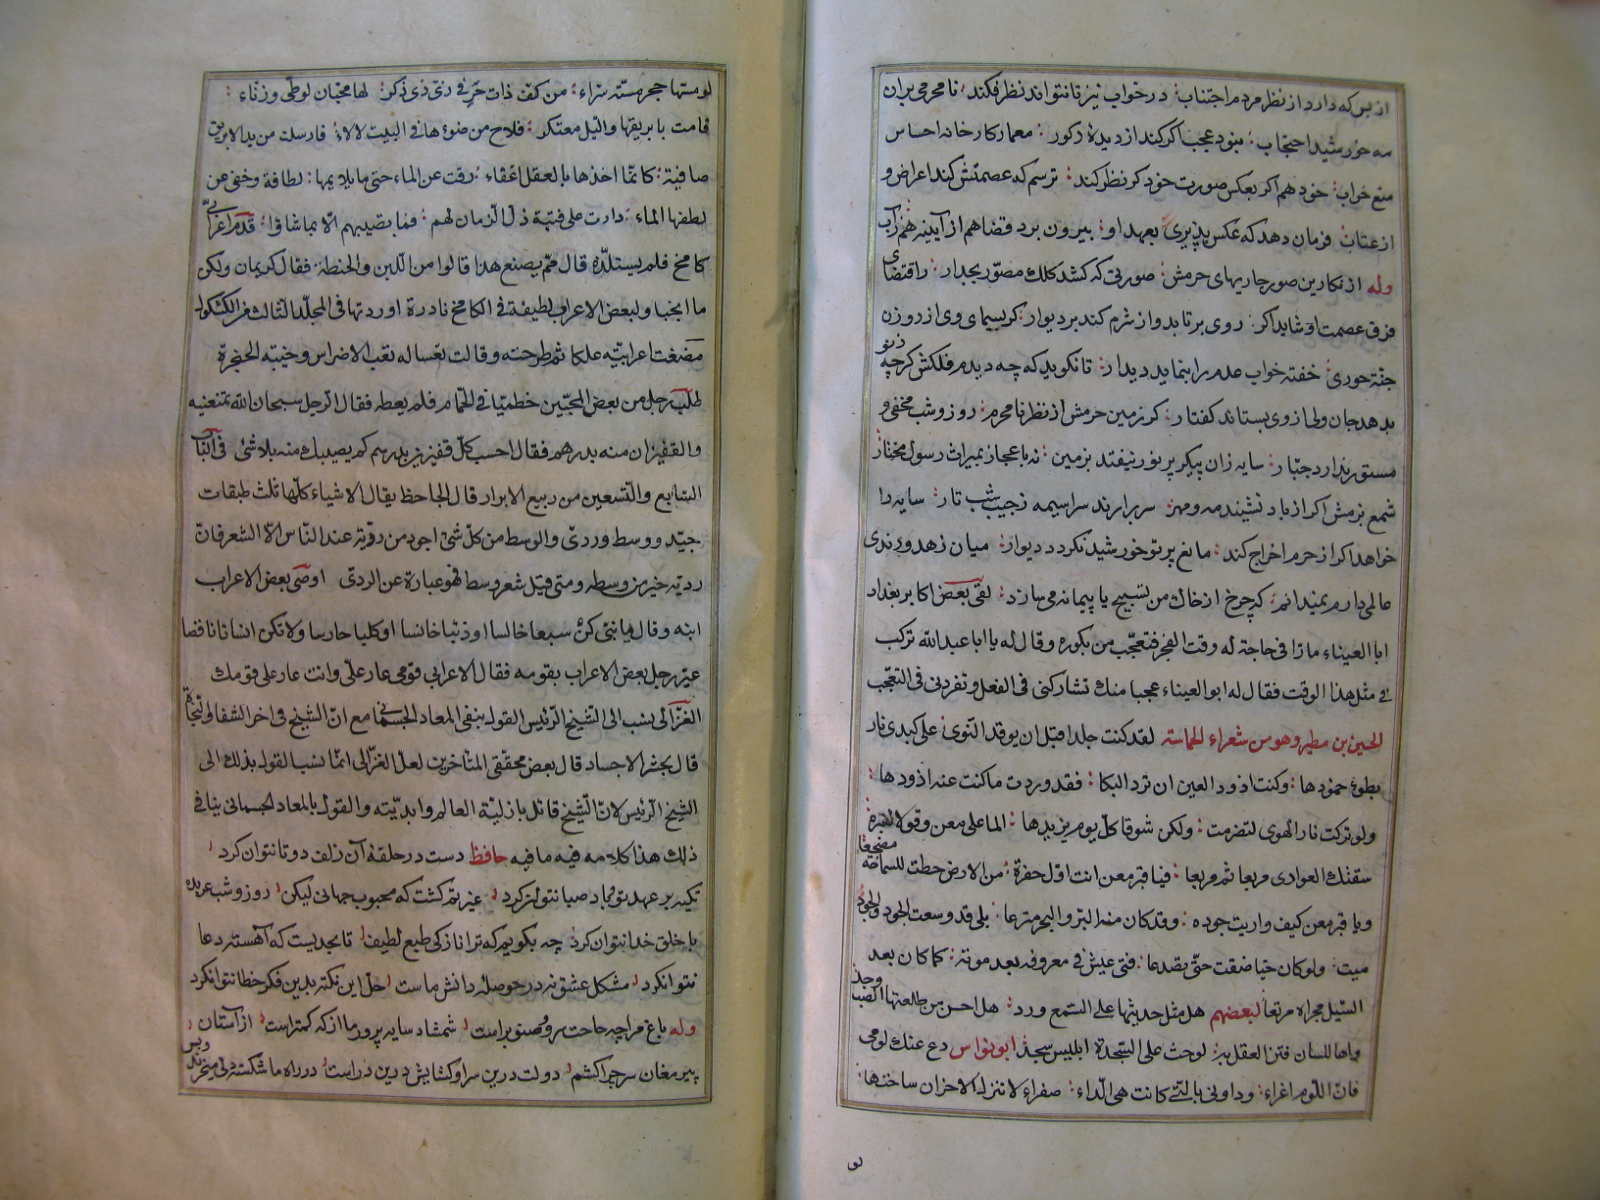 از بس که دارد از نظر مردم اجتناب در خواب نیز تا نتواند نظر فکند نامحرمی بران
مه خورشید احتجاب نبود عجب اگر کند از دیدۀ ذکور معمار کارخانه احساس
منع خواب خود هم اگر بعکس صورت خود گر نظر کند ترسم که عصمتش کند اعراض و
از عتاب فرمان دهد که عکس پذیری بعهد او بیرون برد قضا هم از آیینه هم ز آب
وله از نگارین صور جاریهای حرمش صورتی که کشد کلک مصور بجدار ز اقتضای
فرق عصمت او شاید اگر روی برتابد و از شرم کند بر دیوار گر بسیمای وی از روزن
جنة حوری خفته خواب عدم را بنماید دیدار تا نگوید که چه دیدم فلکش گرچه ز نو
بدهد جان ولی از وی بستاند گفتار گر زمین حرمش از نظر نامحرم روز و شب مخفی و
مستور ندارد جبار سایه زان پیکر پر نور نیفتد بزمین نه باعجاز بمیراث رسول مختار
شمع بزمش اگر از باد نشیند مه و مهر سر برآرند سراسیمه ز جیب شب تار سایه را
خواهد اگر از حرم اخراج کند مانع پرتو خورشید نگردد دیوار میان زهد و رندی
عالمی دارم نمیدانم که چرخ از خاک من تسبیح یا پیمانه می سازد لقی بعض اکابر بغداد
ابا العیناء مارا فی حاجة له وقت الفجر فتعجب من بکوره و قال له یا ابا عبد الله ترکب
فی مثل هذا الوقت فقال له ابو العیناء عجبا منک تشارکنی فی الفعل و تفردنی فی التعجب
الحسین بن مطیر و هو من شعراء الحماسة لقد کنت جلدا قبل ان یوقد النوی علی کبدی نار
بطیء خمودها و کنت اذود العین ان ترد البکا فقد وردت ما کنت عنه اذودها
ولو ترکت نار الهوی لتضرمت ولکن شوقا کل یوم یزیدها الما علی معن و قولا لقبره
سقتک الغوادی مربعا ثم مربعا فیا قبر معن انت اول حفرة من الارض حطت للسماحة مضجعا
و یا قبر معن کیف واریت جوده و قد کان منه البر و البحر مترعا بلی قد وسعت الجود و الجود
میت ولو کان حیا ضقت حتی تصدعا فتی عیش فی معروفه بعد موته کما کان بعد
السیل مجراه مرتعا لبعضهم هل مثل حدیثها علی السمع ورد هل احسن من طلعتها
واها للسان فتن العقل به لو حث علی السجدة ابلیس سجد ابو نواس دع عنک لومی
فان اللوم اغراء و داونی بالتی کانت هی الداء صفراء لا تنزل الاحزان ساحتها
لو
لو مستها حجر مسته سراء من کف ذات حر فی زی ذی ذکر لها محبان لوطی و زناء
قامت بابریقها و اللیل معتکر فلاح من ضوءها فی البیت لالاء فارسلت من ید الابریق
صافیة کانما اخذها بالعقل اغفاء رقت عن الماء حتی ما یلایمها لطافة و خفی عن
لطفها الماء دارت علی فتیة ذل الزمان لهم فما یصیبهم الا بما شاؤا قدم اعرابی
کامخ فلم یستلذه قال مم یصنع هذا قالوا من اللبن و الحنطة فقال کریمان ولکن
ما انجبا و لبعض الاعراب لطیفة فی الکامخ نادرة اوردتها فی المجلد الثالث من الکشکول
مضغت اعرابیة علکا ثم طرحته و قالت تعسا له تعب الاضراس و خیبة الحنجرة
طلب رجل من بعض المجبین خطمیا فی الحمام فلم یعطه فقال الرجل سبحان الله تمنعنیه
و القفیزان منه بدرهم فقال احسب کل قفیزین بدرهم کم یصیبک منه بلا شئ فی الباب
السابع و التسعین من ربیع الابرار قال الجاحظ یقال الاشیاء کلها ثلث طبقات
جید و وسط و ردی و الوسط من کل شئ اجود من ردیه عند الناس الا الشعر فان
ردیه خیر من وسطه و متی قیل شعر وسط فهو عبارة عن الردی اوصی بعض الاعراب
ابنه و قال یا بنی کن سبعا خالسا او ذئبا خانسا او کلبا حارسا و لا تکن انسانا ناقصا
عیر رجل بعض الاعراب بقومه فقال الاعرابی قومی عار علی و انت عار علی قومک
الغزالی نسب الی الشیخ الرئیس القول بنفی المعاد الجسمانی مع ان الشیخ فی اخر الشفا و النجاة
قال بحشر الاجساد قال بعض محققی المتاخرین لعل الغزالی انما نسب القول بذلک الی
الشیخ الرئیس لان الشیخ قائل بازلیة العالم و ابدیته و القول بالمعاد الجسمانی ینافی
ذلک هذا کلامه فیه ما فیه حافظ دست در حلقۀ آن زلف دوتا نتوان کرد
تکیه بر عهد تو و باد صبا نتوان کرد غیرتم کشت که محبوب جهانی لیکن روز و شب عربده
با خلق خدا نتوان کرد چه بگویم که ترا نازکی طبع لطیف تا بحدیست که آهسته دعا
نتوان کرد مشکل عشق نه در حوصلۀ دانش ماست حل این نکته بدین فکر خطا نتوان کرد
وله باغ مرا چه حاجت سرو و صنوبر است شمشاد سایه پرور ما از که کمتر است از آستان
پیر مغان سر چرا کشم دولت درین سرا و گشایش درین در است در راه ما شکسته دلی میخرند و بس